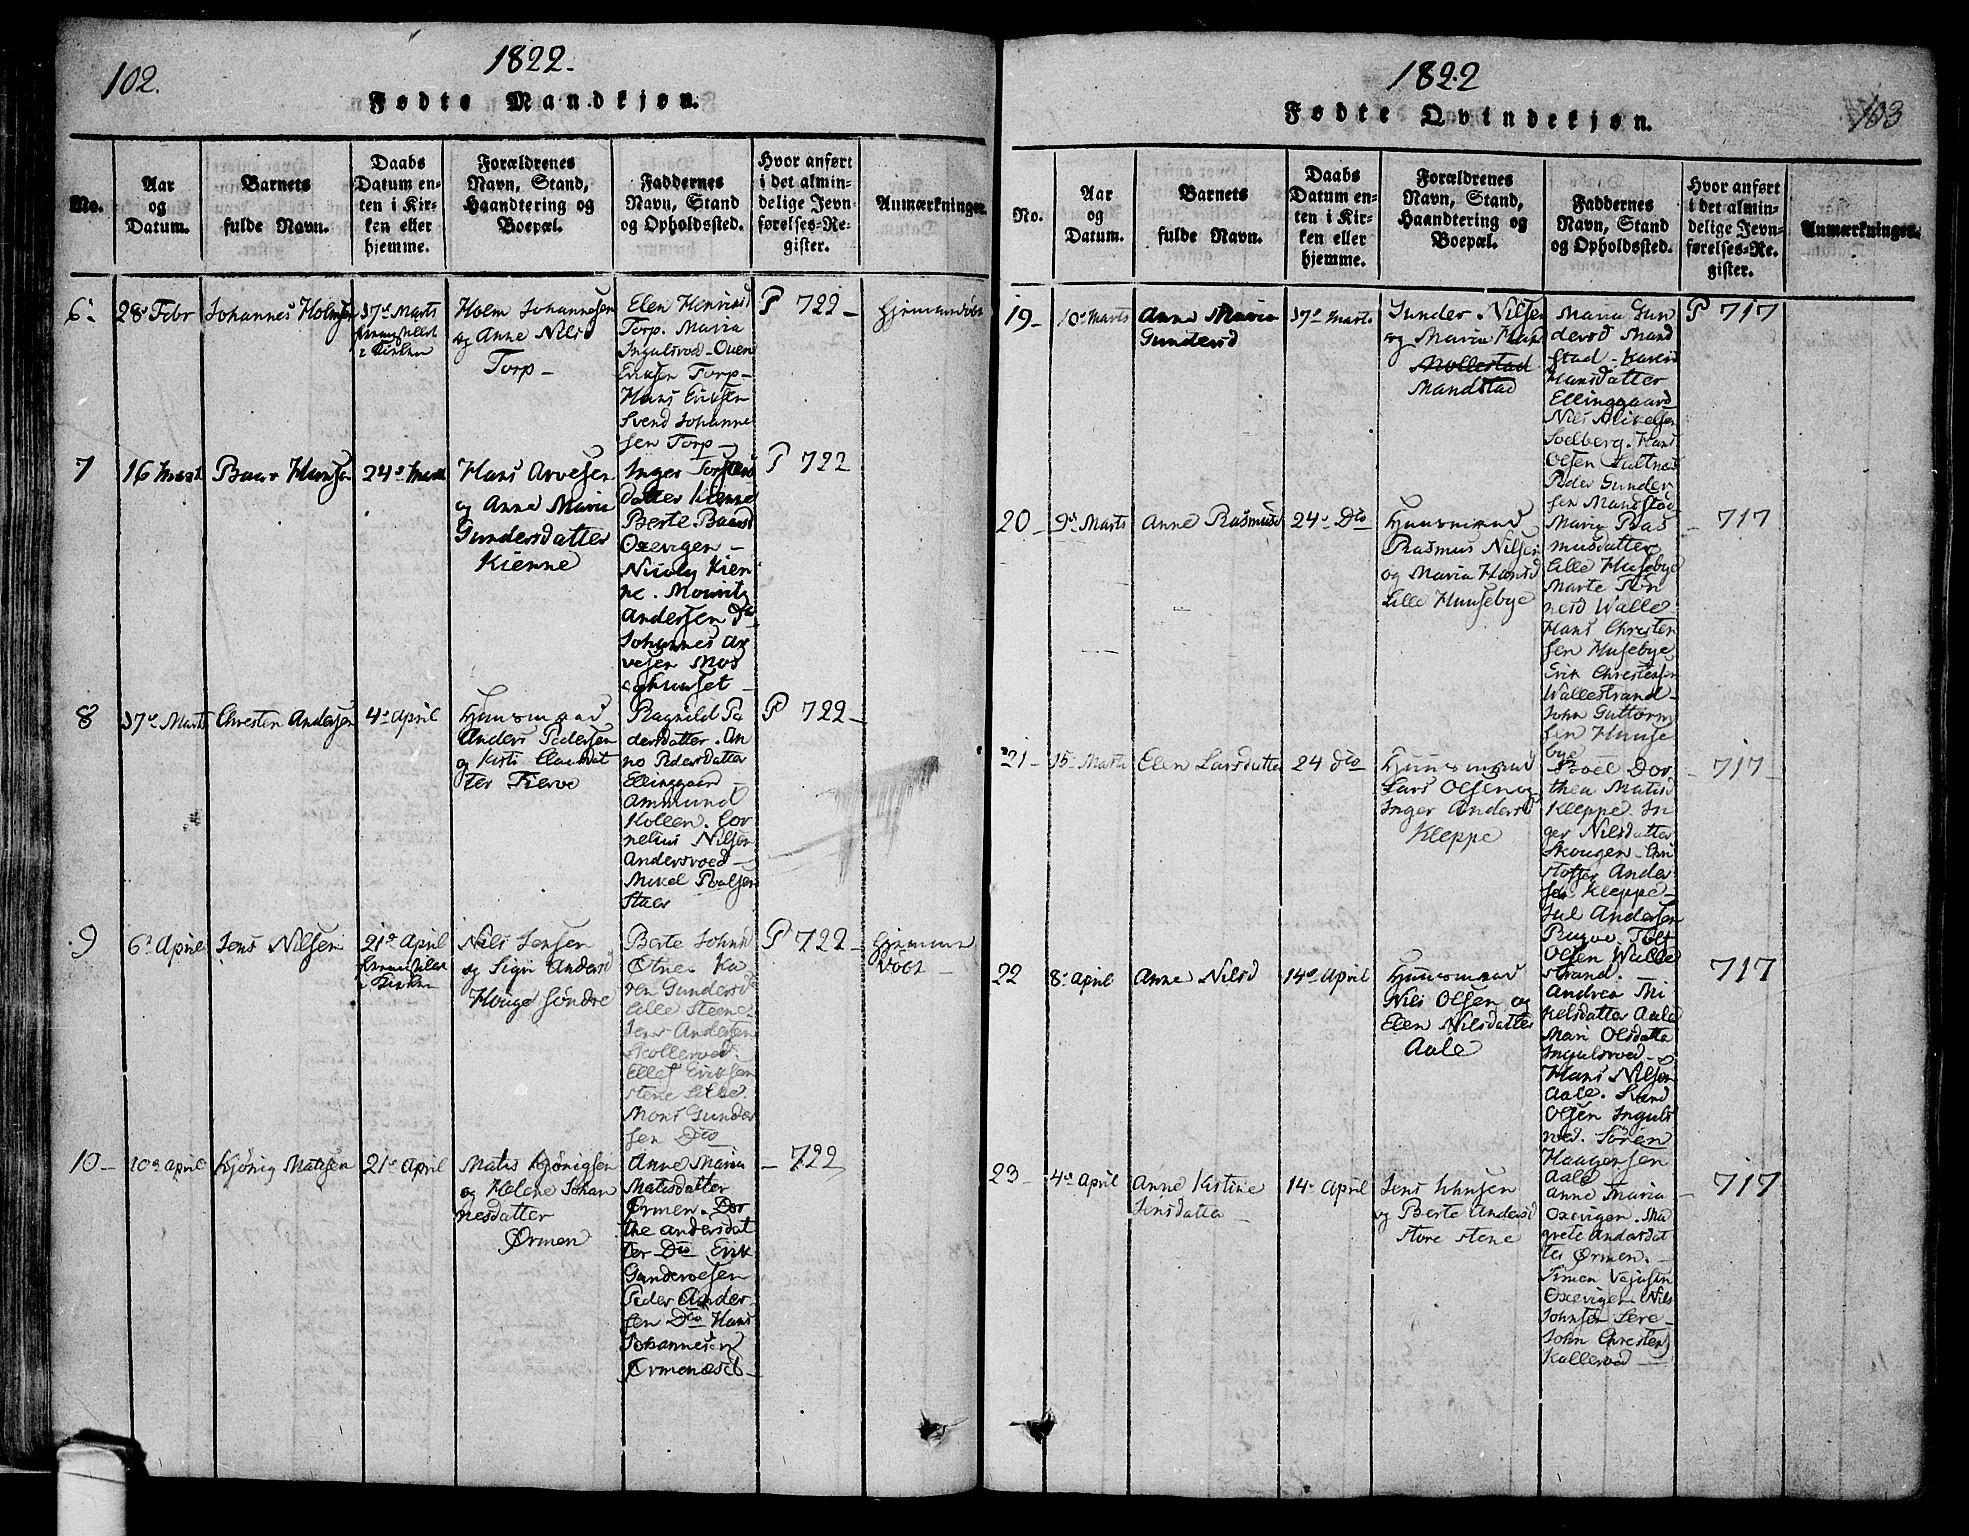 102.
1822.
Fødte Mandkjøn.
No.
Aar
og
Datum.
Barnets
fulde Navn.
Daabs
Datum en-
ten i Kir-
ken eller
hjemme.
Forældrenes
Navn, Stand,
Haandtering og
Boepæl.
Faddernes
Navn, Stand
og Opholdssted.
Hvor anført
i det almin-
delige Jevn-
førelses-Re-
gister.
Anmærkninger.
6
28 Febr
Johannes Holmsen
17 Marts
i Kirken
Holm Johannesen
og Anne Nilsd
Torp
Elen Henriksd
Torp. Maria
Ingulsroed - Ouen
Eriksen Torp
Hans Eriksen
Svend Johanne
sen Torp
P 722
Hjemmedøbt
7
16 Mart
Baar Hansen
24 Mart
Hans Arvesen
og Anne Maria
Gundersdatter
Kienne
Inger Torstens
datter Kienne
Berte Baarsd
Oxevigen
Nicolay Kien
ne. Mouritz
Andersen Do
Johannes Ar
vesen Mos
P 722
8
17 Marts
Chresten Andersen
4 April
Huusmand
Anders Pedersen
og Kirsti Clausdat
ter Kierve
Ragnild Pe
dersdatter. An
ne Pedersdatter
Ellinggaard
Ammund
Kollen. Cor
nelius Nilsen
Andersroed
Mikel Poalsen
P 722
9
6 April
Jens Nilsen
21 April
i Kirken
Nils Jensen
og Sigri Andersd
Houge søndre
Berte Johnsd
Otne. Ka
ren Gundersd
Lille Steene
Jens Andersen
Skollerød
Ellef Eriksen
Stene Lille
Mons Gunder
sen Do
P 722
Hjemme
døbt
10
10 April
Kjønig Matisen
21 April
Matis Kjønigsen
og Helene Johan
nesdatter
Ørmen
Anne Maria
Matisdatter
Ørmen. Dor
the Andersdat
ter Do Erik
Gundersen
Peder Ander
sen Do Hans
Johannesen
722
1822
103
Fødte Qvindekjøn.
No.
Aar
og
Datum.
Barnets
fulde Navn.
Daabs
Datum en-
ten i Kir-
ken eller
hjemme.
Forældrenes
Navn, Stand,
Haandtering og
Boepæl.
Faddernes
Navn, Stand
og Opholdssted.
Hvor anført
i det almin-
delige Jevn-
førelses-Re-
gister.
Anmærkninger.
19
10 Marts
Anne Maria
Gundersd
17 Marts
Gunder Nilsen
og Maria Hansd
Mollestad
Mandstad
Maria Gun
dersd Mand
stad - Karen
Hansdatter
Ellinggaard
Nils Mikelsen
Soelberg. Hans
Olsen Hultnes
Peder Gunder
sen Mandstad
P 717
20
9 Marts
Anne Rasmusd
24 Do
Huusmand
Rasmus Nilsen
og Maria Hansd
Lille Huusebye
Maria Ras
musdatter
Lille Husebye
Marte Tøn
nesd Walle
Hans Chresten
sen Husebye
Erik Chrestensen
Wallestrand
John Guttorm
sen Huuse
bye
717
21
15 Marts
Elen Larsdatter
24 Do
Huusmand
Lars Olsen og
Inger Andersd
Kleppe
Roel Dor
thea Matisd
Kleppe. In
ger Nilsdatter
Skougen - Chri
stoffer Ander
sen Kleppe
Jul Andersen
Olsen Walle
strand.
717
22
8 April
Anne Nilsd
14 April
Huusmand
Nils Olsen og
Elen Nilsdatter
Aale
Andrea Mi
kelsdatter Aale
Mari Olsdatter
Ingulsroed
Hans Nilsen
Aale. Knud
Olsen Inguls
roed. Søren
Haagensen
Aale
717
23
4 April
Anne Kirstine
Jensdatter
14 April
Jens Johnsen
og Berte Andersd
Store Stene
Anne Maria
Oxevigen. Ma
grete Andersdat
ter Ørmen.
Simen
Oxevigen. Nils
Johnsen
John Chrestens
Kallerød
717